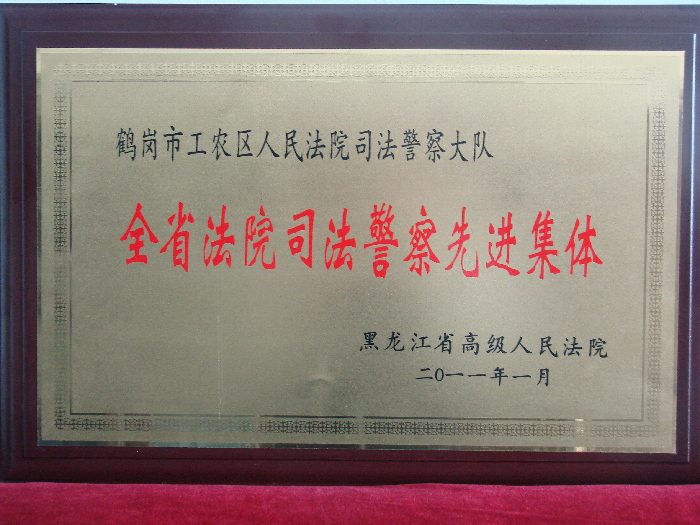 鹤岗市工农区人民法院司法警察大队
全省法院司法警察先进集体
黑龙江省高级人民法院
二〇一一年一月